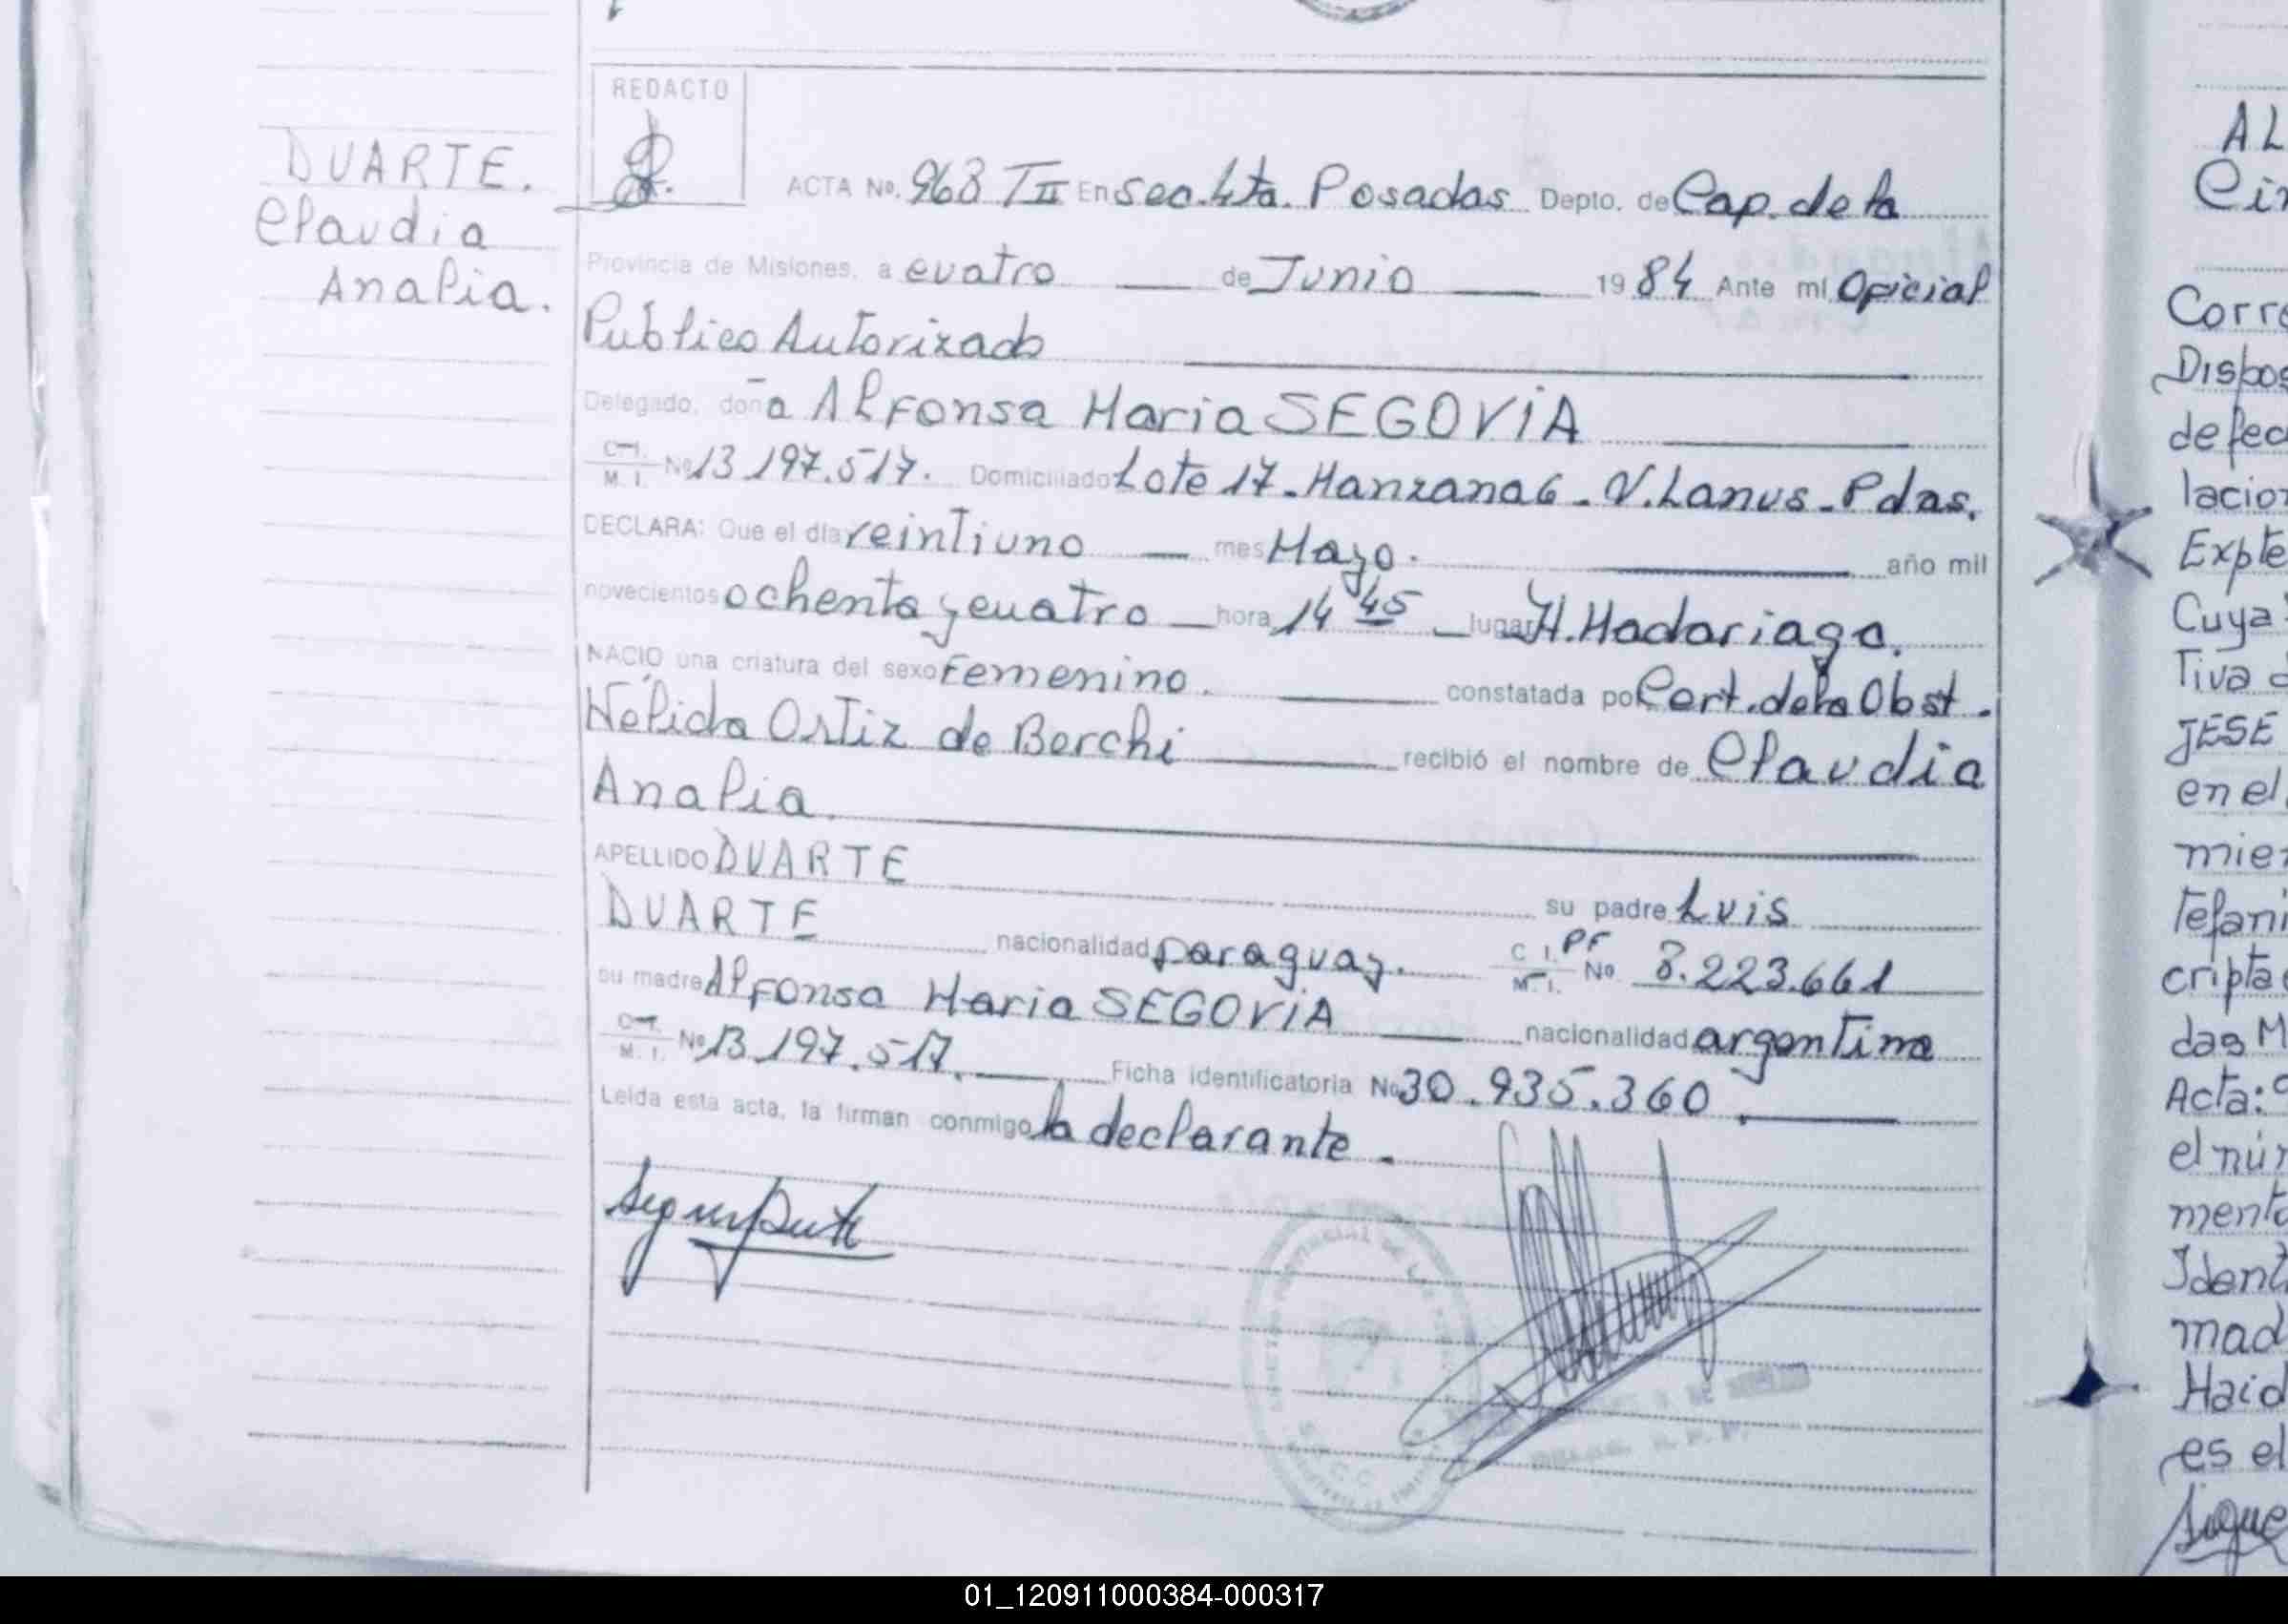 REDACTO
DUARTE.
Claudia
Analia.
ACTA No. 968 TII En sec. 4ta. Posadas Depto. de Cap. de la
Provincia de Misiones, a cuatro de Junio 1984 Ante mí Oficial
Público Autorizado
Delegado, doña Alfonsa Maria SEGOVIA
C.I. M.I. No 13.197.517. Domiciliado Lote 17-Manzana 6-V. Lanus-Pdas.
DECLARA: Que el día veintiuno mes Mayo. año mil
novecientos ochenta y cuatro hora 14 45 lugar H. Madariaga.
NACIO una criatura del sexo Femenino. constatada por Cert. de la Obst.
Nélida Ortiz de Berchi recibió el nombre de Claudia
Analia.
APELLIDO DUARTE su padre Luis
DUARTE nacionalidad paraguay. C.I. PF M.I. No 8.223.661
su madre Alfonsa Maria SEGOVIA nacionalidad argentina
C.I. M.I. No 13.197.517. Ficha identificatoria No 30.935.360.
Leída esta acta, la firman conmigo la declarante.
AL
Corre
Dispos
defec
lacio
Expte
Cuya
Tiva d
JESE
en el
mier
Tefani
cripta
das M
Acta:
el nún
mento
Ident
mad
Haid
es el
01_120911000384-000317